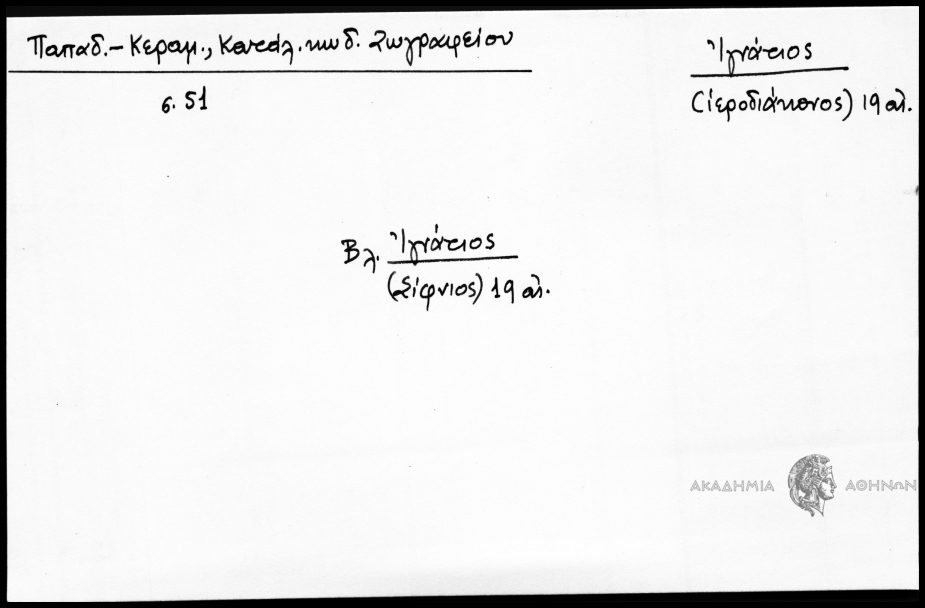 Παπαδ.-Κεραμ., Καταλ. κωδ. Ζωγραφείου
σ. 51
Ἰγνάτιος
(ἱεροδιάκονος) 19 αἰ.
Βλ. Ἰγνάτιος
(Σίφνιος) 19 αἰ.
ΑΚΑΔΗΜΙΑ ΑΘΗΝΩΝ